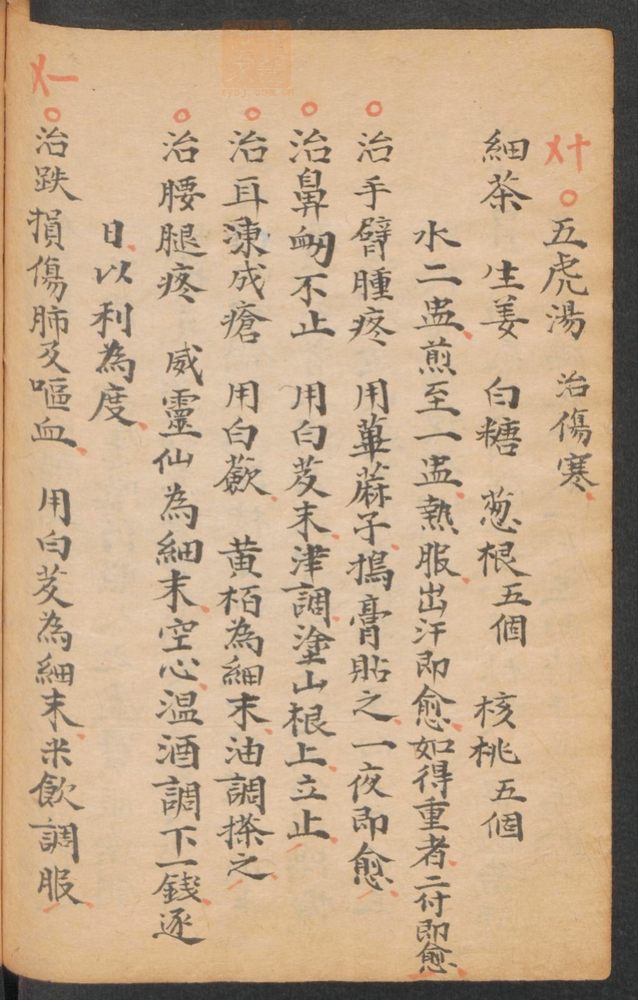 〤十 五虎湯 治傷寒
細茶 生姜 白糖 葱根五個 核桃五個
水二盅煎至一盅熱服出汗即愈如得重者二付即愈
治手臂腫疼 用萆蔴子搗膏貼之一夜即愈
治鼻衂不止 用白芨末津調塗山根上立止
治耳凍成瘡 用白蘞 黄栢為細末油調搽之
治腰腿疼 威靈仙為細末空心温酒調下一錢逐
日以利為度
〤一 治跌損傷肺及嘔血 用白芨為細末米飲調服